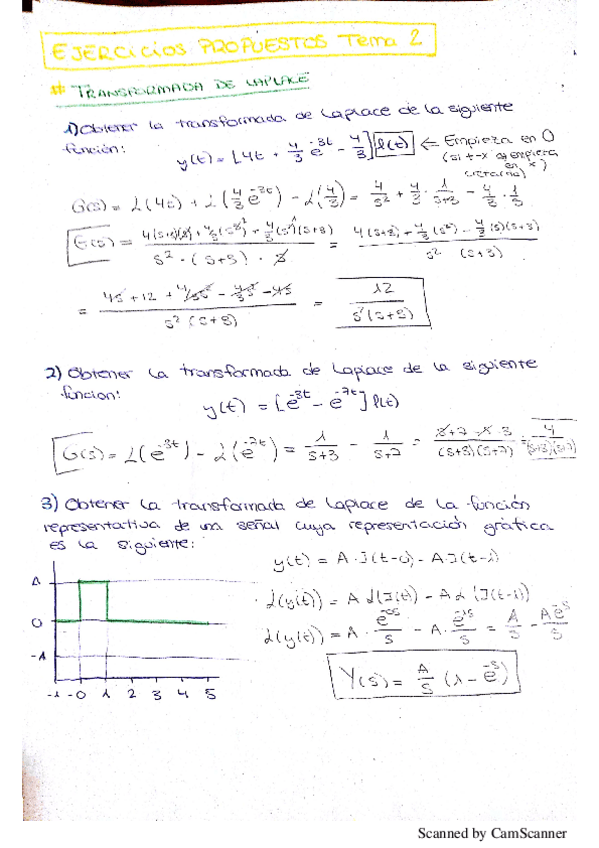 EJERCICIOS PROPUESTOS Tema 2
# TRANSFORMADA DE LAPLACE
1) Obtener la transformada de Laplace de la siguiente
función: y(t) = [4t + 4/3 e^-3t - 4/3] 1(t) ⇐ Empieza en 0
G(s) = L(4t) + L(4/3 e^-3t) - L(4/3) = 4/s² + 4/3 · 1/s+3 - 4/3 · 1/s
s² · (s+3) · 3
s² (s+3)
= 4s + 12 + 4/3 s² - 4/3 s² - 4s / s² (s+3) = 12 / s² (s+3)
2) Obtener la transformada de Laplace de la siguiente
funcion: y(t) = [e^-3t - e^-7t] 1(t)
G(s) = L(e^-3t) - L(e^-7t) = 1/s+3 - 1/s+7 = s+7-s-3 / (s+3)(s+7) = 4 / (s+3)(s+7)
3) Obtener la transformada de Laplace de la función
representativa de una señal cuya representación gráfica
es la siguiente:
y(t) = A · 1(t-0) - A · 1(t-1)
L(y(t)) = A L(1(t)) - A L(1(t-1))
L(y(t)) = A · e^-0s/s - A · e^-1s/s = A/s - Ae^-s/s
Y(s) = A/s (1 - e^-s)
A
0
-A
-1 -0 1 2 3 4 5
Scanned by CamScanner